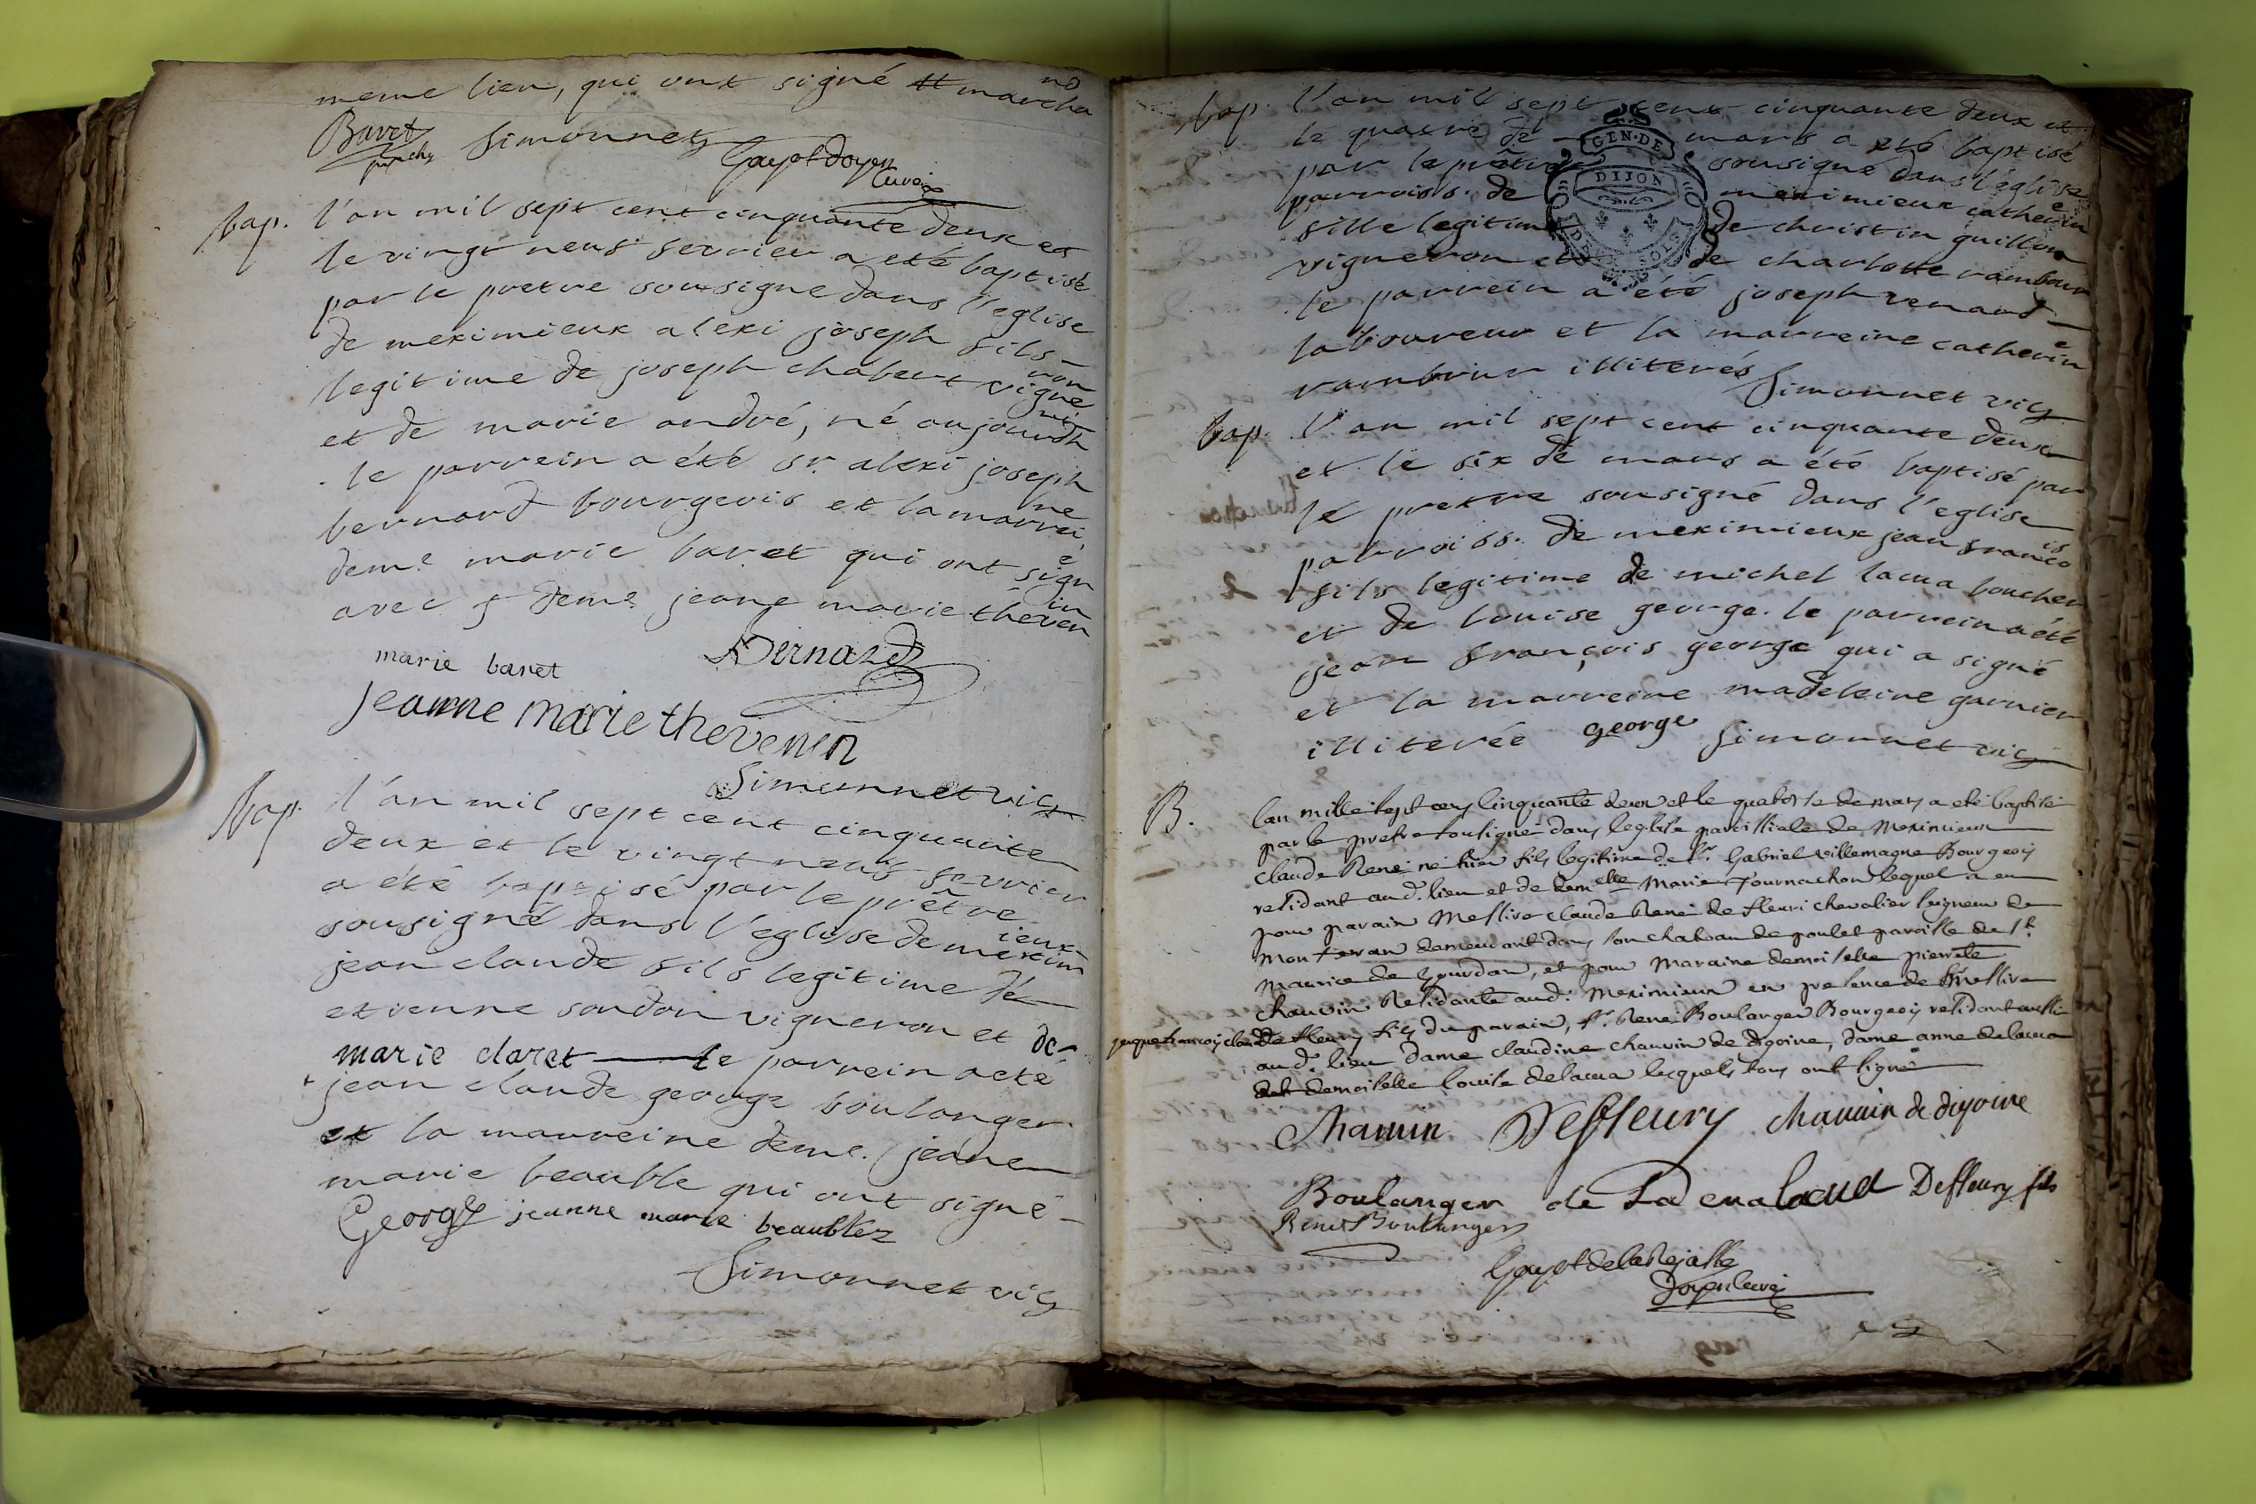 meme lieu, qui ont signé marchand
Baret Simonnet Gayot doyen
Curé
bap. l'an mil sept cent cinquante deux et
le vingt neuf fevrier a eté baptisé
par le pretre sousigne dans l'eglise
de meximieux alexi joseph fils
legitime de joseph chabert vigneron
et de marie andré, né aujourdhui
le parrein a été sr. alexi joseph
bernard bourgeois et la marreine
deme marie baret qui ont signé
avec deme jeane marie thevenin
marie baret Bernard
jeanne marie thevenin
Simonnet vic
bap. l'an mil sept cent cinquante
deux et le vingt neuf fevrier
a été baptisé par le prêtre
sousigné dans l'eglise de meximieux
jean claude fils legitime de
etienne soudon vigneron et de
marie claret le parrein a eté
jean claude george boulanger
et la marreine deme. jeane
marie beauble qui ont signé
George jeanne marie beaublez
Simonnet vic
bap. l'an mil sept cent cinquante deux et
le quatre de mars a eté baptisé
par le prêtre sousigné dans l'église
parroiss. de meximieux catherine
fille legitime de christin guillon
vigneron et de charlotte rambour
le parrein a été joseph renard
laboureur et la marreine catherine
rambour illiterés Simonnet vic
GEN. DE
DIJON
bap. l'an mil sept cent cinquante deux
et le six de mars a été baptisé par
le pretre sousigné dans l'eglise
parroiss. de meximieux jean francois
fils legitime de michel lacua boucher
et de louise george. le parrein a été
jean françois george qui a signé
et la marreine madeleine garnier
illiterée george Simonnet vic
B. lan mille sept cens cinquante deux et le quatorse de mars a eté baptisé
par le pretre sousigné dans leglise paroissiale de Meximieux
claude René né hier fils legitime de sr. Gabriel villemagne Bourgeois
residant aud. lieu et de demelle Marie Tournachon lequel a eu
pour parain Messire claude René de fleuri chevalier seigneur de
Monteran demeurant dans son chateau de poulet paroisse de st.
Maurice de gourdan, et pour Maraine demoiselle pierrette
chauvin Residante aud. Meximieux en presence de Messire
jaque francois claude de fleury fils du parain, sr. René Boulanger Bourgeois residant aussi
aud. lieu dame claudine chauvin de digoine, dame anne delacua
demoiselle louise delacua lesquels tous ont signé
Chauvin Deffleury chauvin de digoine
Boulanger de La cua lacua Deffleury fils
René Boulanger
Gayot de la Rejasse
doyen curé